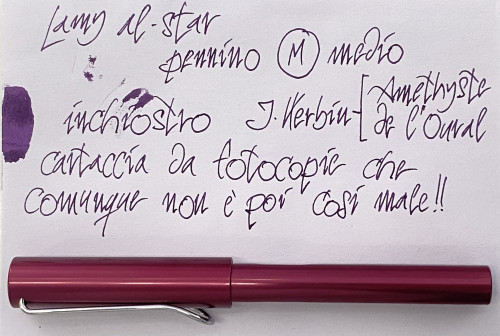 Lamy al-star
pennino M medio
inchiostro J. Herbin [Améthyste
de l'Oural
cartaccia da fotocopie che
comunque non è poi così male!!